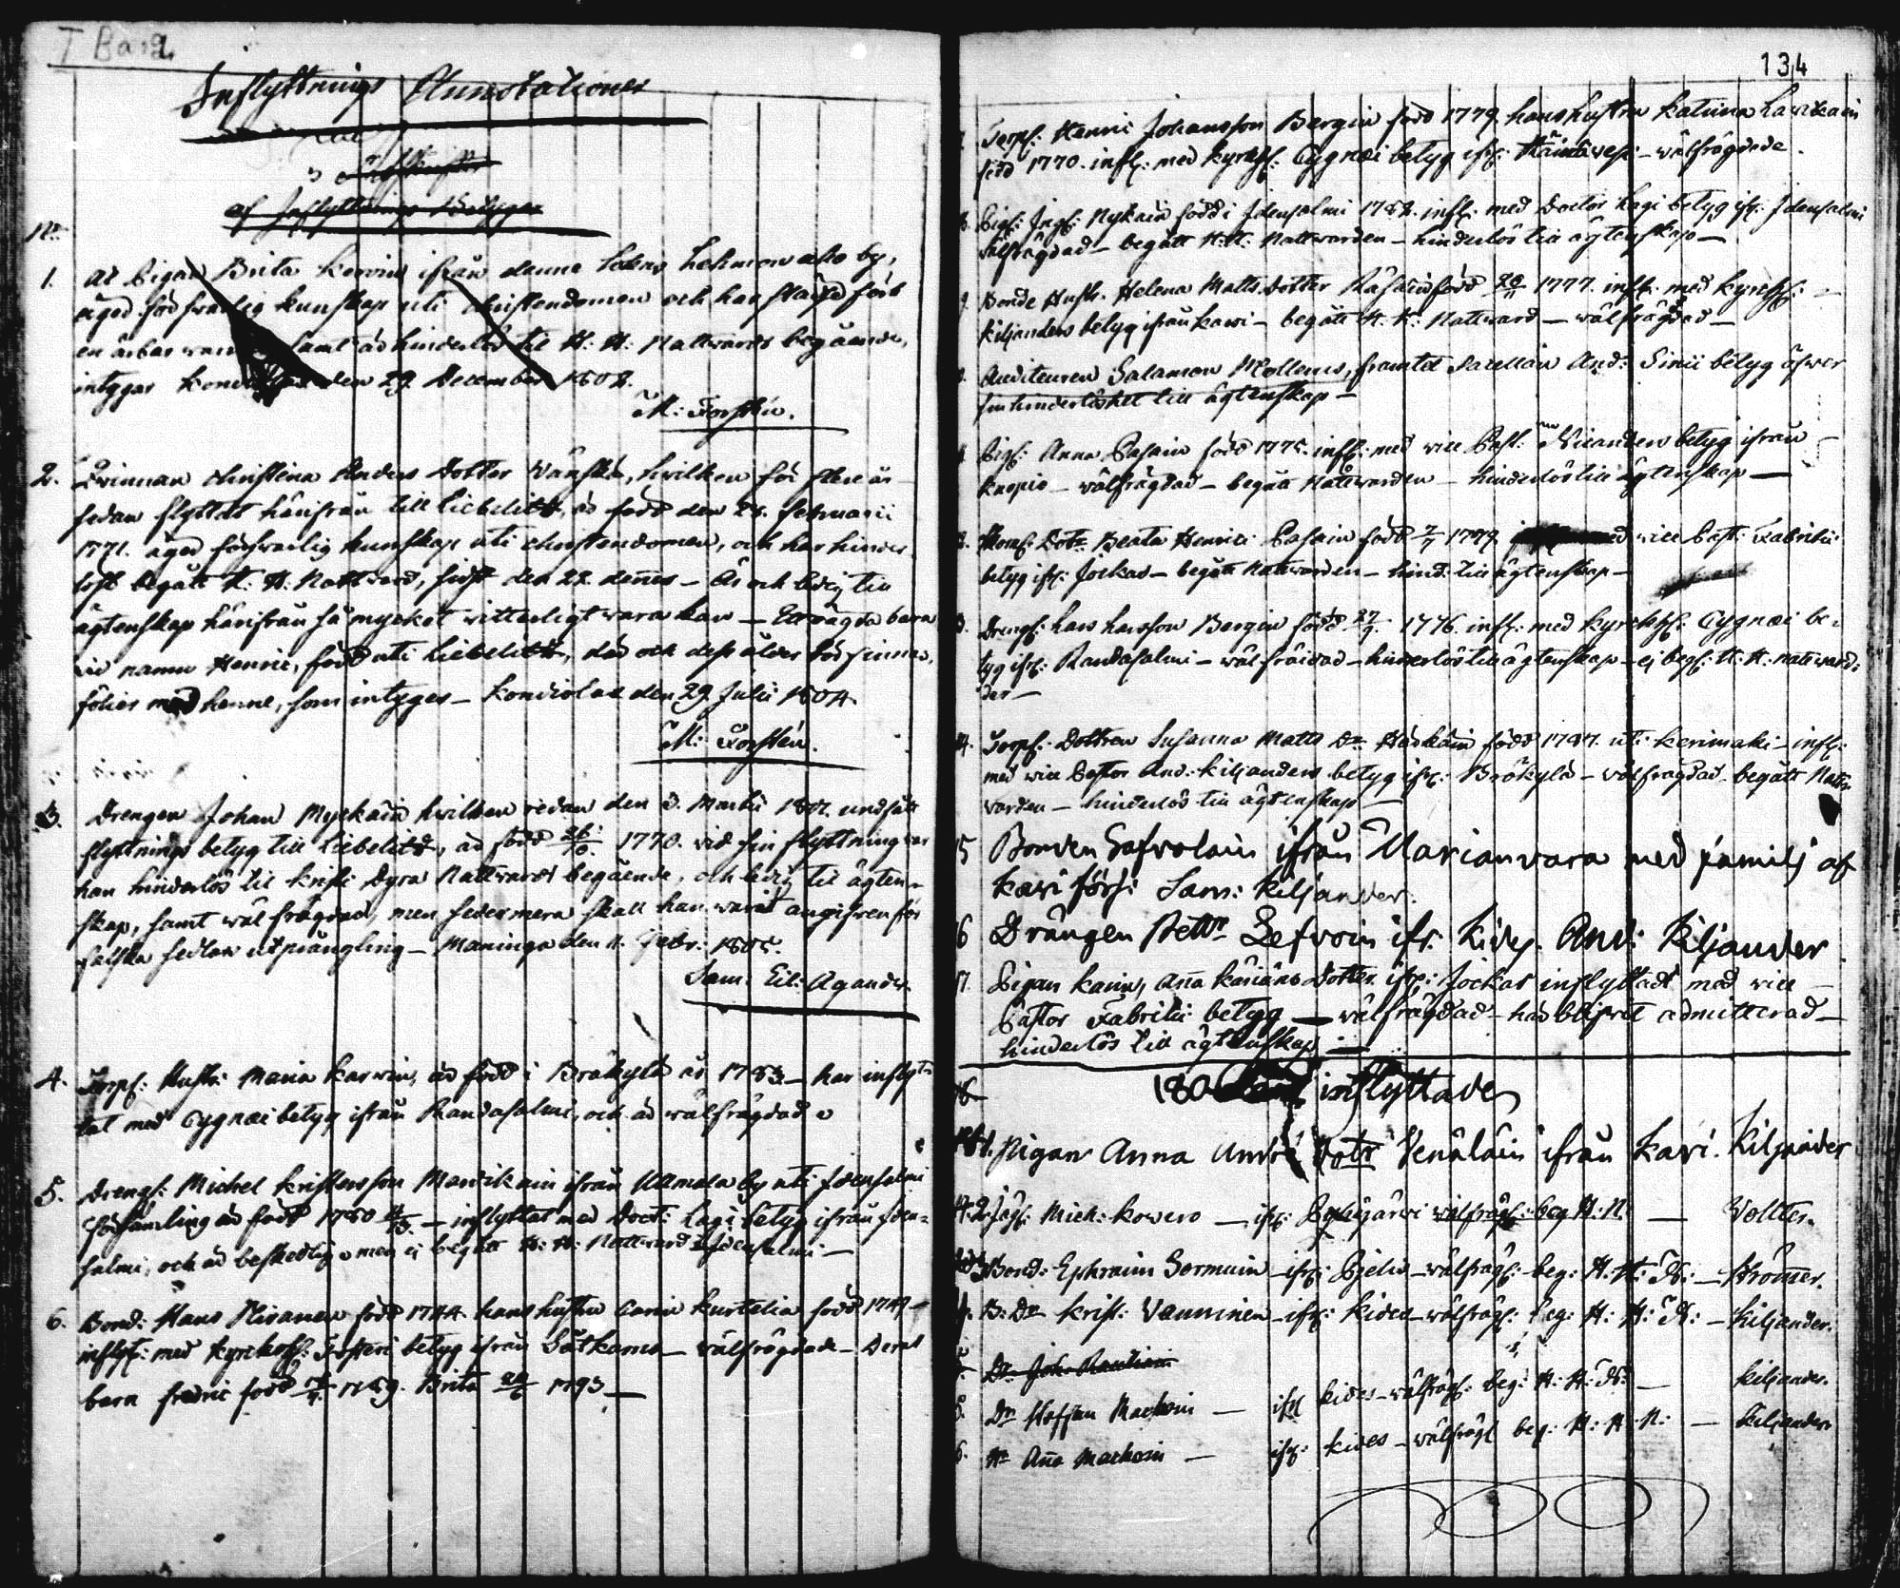 I Ba 12
Inflyttnings Annotationer
af Inflyttnings Betyger
No
1. At Pigan Brita Korvin ifrån denne Sokns Lehmonaho by,
äged försvarlig kunskap uti christendomen och har städse fördt
en ärbar samt är hinderlös til H: H: Nattvards begående,
intygar den 29 December 1802.
M: Forstén.
2. Qvinnan Christina Anders Dotter Wänskä, hvilken för flere år
sedan flyttat härifrån till Liebelitz, är född den 28. Februarii
1771. äged försvarlig kunskap uti christendomen, och har hinder
löst begått H. H. Nattward, sidst den 22 dennes – Är och ledig till
ägtenskap härifrån så mycket witterligt vara kan – Et oägta barn
vid namn Henric, född uti Liebelitz, där och dess ålder bör finnas,
följer med henne, som intyges – Kondiolax den 29 Julii 1804.
M: Forstén.
3. Drengen Johan Myckäin hvilken redan den 3. Martii 1802. undfått
flyttnings betyg till Liebelitz, är född 26/10. 1770. vid sin flyttning var
han hinderlös til Kristi Dyra Nattvards begående, och ledig til ägten-
skap, samt wälfrägdad, men sedermera skall han varit angifven för
falska sedlars utprångling – Maninga den 11. Febr: 1805.
Sam: El: Agander.
4. Torpf: Hustr: Maria Karvin, är född i Bråkylä år 1783 – har inflyt-
tat med Cygnæi betyg ifrån Randasalmi, och är wälfrägdad
5. Drengf: Michel Kristersson Manikain ifrån Ulmala by uti Idensalmi
Församling är född 1780 – inflyttat med Doct: Lagi betyg ifrån Iden-
salmi, och är beskedlig men ej begått H: H: Nattvard i Idensalmi –
6. Bond: Hans Hiranen född 1744 hans hustru Carin Kurtelia född 1747
inflyt: med Kyrckoh: betyg ifrån Sotkamo – välfrägdade – Deras
barn Fredric född 1789. Brita 1793 –
134
7. Torpf: Henric Johansson Bergin född 1779 hans hustru Katrina Lavikain
född 1770. infl: med Kyrckoh: Cygnæi betyg ifr: – wälfrägdade.
8. Pigf: Nykäin född i Idensalmi 1782. infl: med Doctor Lagi betyg ifr: Idensalmi
wälfrägdad – begått H: H: Nattwarden – hinderlös till ägtenskap –
9. Bonde Hustr. Helena Matts Dotter Räsäin född 20/11 1777. infl: med Kyrckoh: –
Kiljanders betyg ifrån Kavi – begått H. H: Nattward – wälfrägdad –
Auditeuren Salamon Mollerus, framtet Sacellan And: Sinii betyg öfwer
sin hinderlöshet till ägtenskap –
Pigf: Anna Pasain född 1775. infl: med vice Past: Nicanders betyg ifrån
Kuopio – wälfrägdad – begått Nattwarden – hinderlös till ägtenskap –
Dotr Beata Henrici Pasain född 7/7 1777 med vice Past: Fabritii
betyg ifr: Jockas – begått Nattwarden – hind: till ägtenskap –
Drengf: Hans Hansson Bergin född 27/9. 1776. infl: med Kyrckoh: Cygnæi be-
tyg ifr: Randasalmi – wälfräjdad – hinderlös till ägtenskap – ej beg: H. H. nattward
der –
14. Torpf: Dottren Susanna Matts Dr född 1787. uti Kerimaki – infl:
med vice Pastor And: Kiljanders betyg ifr: Bråkylä – välfrägdad – begått Natt-
varden – hinderlös till ägtenskap –
15 Bonden Safvolain ifrån Marianvara med familj af
Kavi förs: Sam: Kiljander.
16 Drängen Pettr Lefvoin ifr. Kides. And: Kiljander
17. Pigan Karin, Ana Kariäns Dotter ifr: Jockas inflyttad med vice –
Pastor Fabritii betyg – välfrägdad – har blifvit admitterad –
hinderlös till ägtenskap –
18 180 inflyttade
1. Pigan Anna Anders Dotr Venäläin ifrån Kavi. Kiljander
2. Mich: Kowero – ifr: Pyhäjärvi välfrägf: beg H: N: – Wolter.
3. Bond: Ephraim Sormuin – ifr: Pjelis – välfrägf: – beg: H: H: N: – Strömer.
4. B: Dr Krist: Vanninen – ifr: Kides – välfrägf: beg: H: H: N: – Kiljander.
5. Dr Joh: Rautiain
5. Dr Staffan Mackoin – ifr Kides – välfrägf: beg: H: H: N: – Kiljander.
6. Hr Ana Mackoin – ifr: Kides – välfrägf beg: H: H: N: – Kiljander